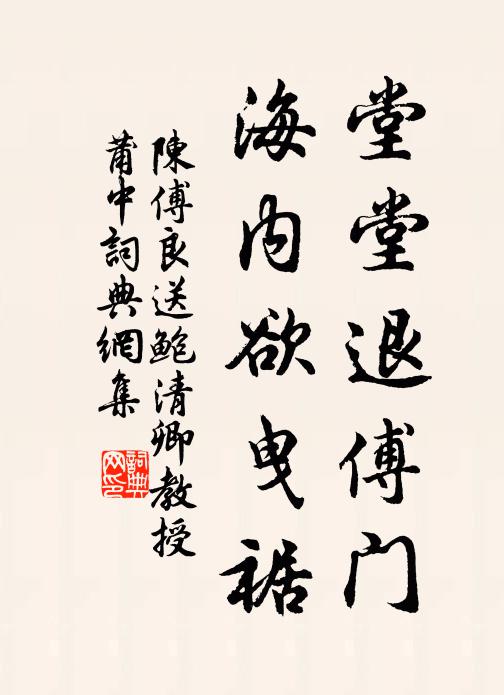 堂堂退傅门
海内欲曳裾
陳傅良送鮑清卿教授
莆中詞典網集
詞典
网印